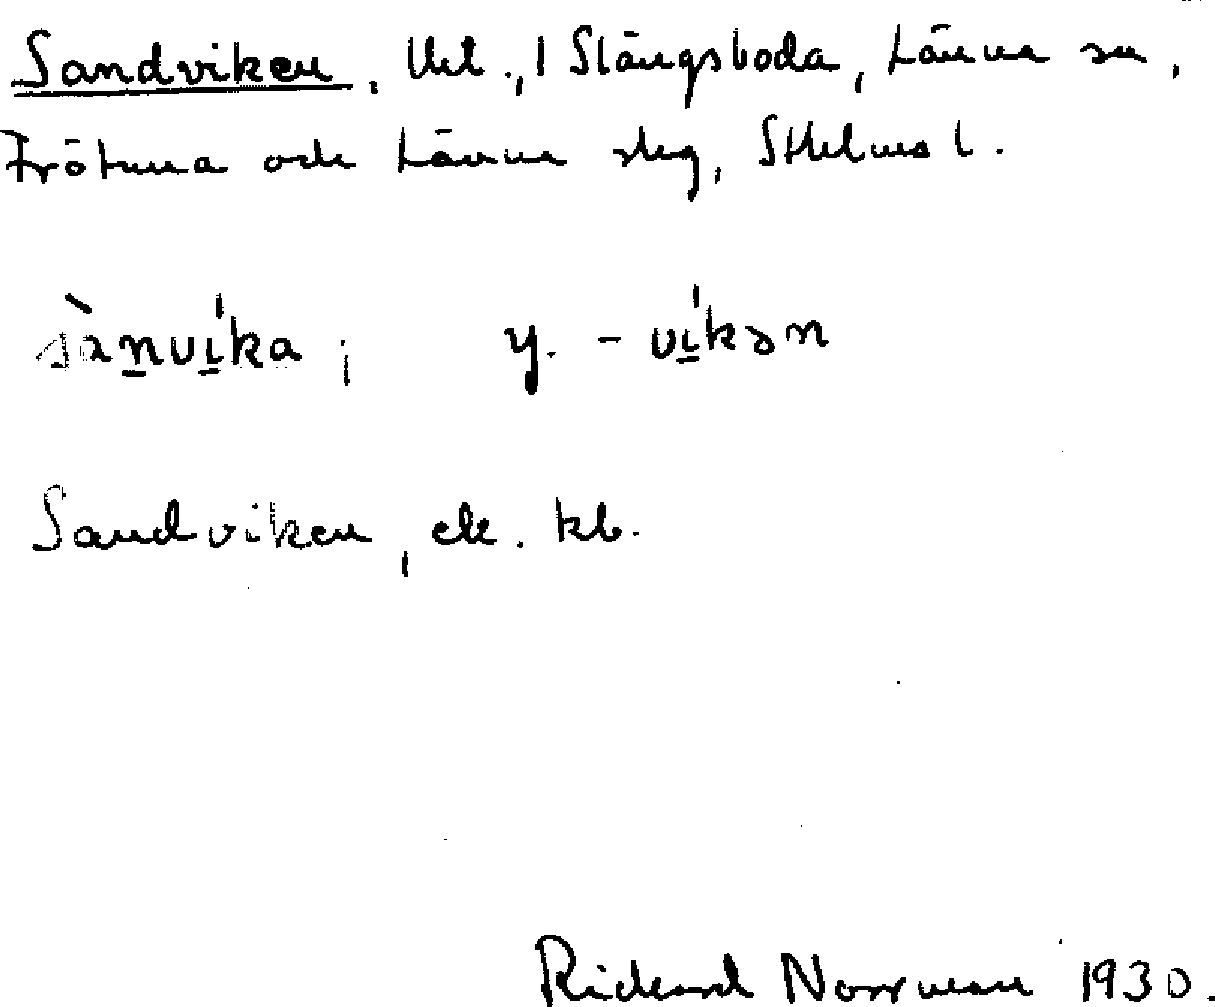 Sandviken, Utl., 1 Slängsboda, Länna sn,
Frötuna och Länna skg, Sthlms l.
sànvi̱ka; y. -vi̱kən
Sandviken, ek. kb.
Rickard Norrman 1930.